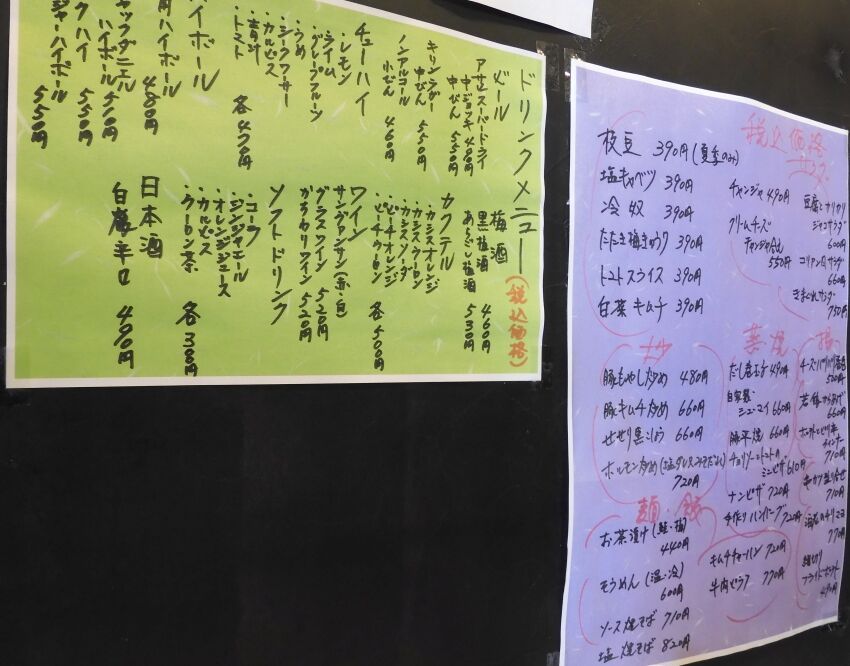 ドリンクメニュー(税込価格)
ビール
アサヒスーパードライ
中ジョッキ 490円
中びん 550円
キリンラガー
中びん 550円
ノンアルコール
小びん 460円
チューハイ
・レモン
・ライム
・グレープフルーツ
・うめ
・シークワーサー
・カルピス
・青汁
・トマト
各470円
ハイボール
ハイボール 480円
ャックダニエル
ハイボール
クハイ 550円
ジャーハイボール 550円
梅酒
黒梅酒 460円
あらごし梅酒 530円
カクテル
・カシスオレンジ
・カシスウーロン
・カシスソーダ
・ピーチオレンジ
・ピーチウーロン
各500円
ワイン
サングリア(赤・白)
グラスワイン 520円
かちわりワイン 520円
ソフトドリンク
・コーラ
・ジンジャエール
・オレンジジュース
・カルピス
・ウーロン茶
各300円
日本酒
白鷹辛口 490円
税込価格
枝豆 390円(夏季のみ)
塩キャベツ 390円
冷奴 390円
たたき梅きゅうり 390円
トマトスライス 390円
白菜キムチ 390円
チャンジャ 490円
クリームチーズ
チャンジャ合え
550円
サラダ
豆腐とカリカリ
ジャコサラダ
600円
コリアンサラダ
660円
きまぐれサラダ
750円
炒
豚もやし炒め 480円
豚キムチ炒め 660円
せせり黒こしょう 660円
ホルモン炒め(塩ダレ・みそだれ)
720円
蒸・焼
だし巻玉子 490円
自家製
シューマイ 660円
豚平焼 660円
チョリソーとトマトの
ミニピザ 610円
ナンピザ 720円
手作りハンバーグ 720円
揚
チーズパリパリ揚
520円
若鶏から揚げ
660円
710円
串カツ盛り合せ
710円
海老のチリマヨ
770円
細切り
フライドポテト
490円
麺・飯
お茶漬け(鮭・梅)
440円
そうめん(温・冷)
600円
ソース焼そば 710円
塩焼そば 820円
キムチチャーハン 720円
牛肉ピラフ 770円